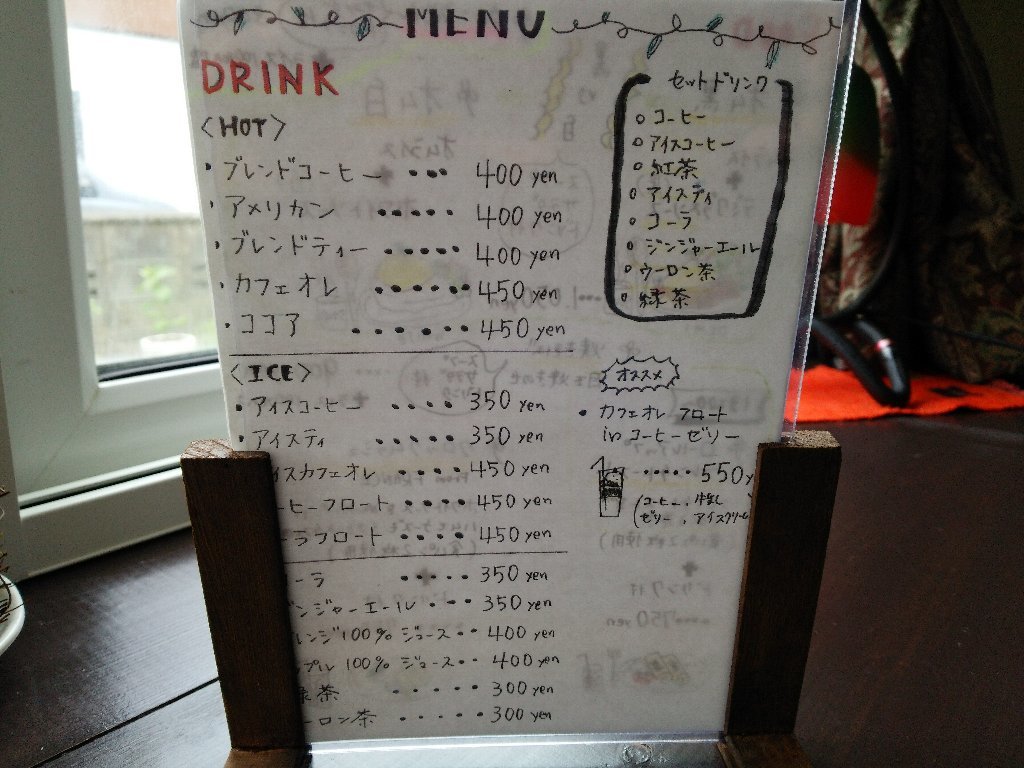 MENU
DRINK
<HOT>
・ブレンドコーヒー ・・・ 400 yen
・アメリカン ・・・・・ 400 yen
・ブレンドティー ・・・・・ 400 yen
・カフェオレ ・・・・・・ 450 yen
・ココア ・・・・・・ 450 yen
<ICE>
・アイスコーヒー ・・・・ 350 yen
・アイスティ ・・・・・ 350 yen
イスカフェオレ ・・・・ 450 yen
ーヒーフロート ・・・・ 450 yen
ーラフロート ・・・・ 450 yen
ーラ ・・・・・ 350 yen
ンジャーエール ・・・ 350 yen
レンジ100% ジュース・・ 400 yen
ップル100% ジュース・・ 400 yen
緑茶 ・・・・・ 300 yen
ーロン茶 ・・・・・ 300 yen
セットドリンク
○ コーヒー
○ アイスコーヒー
○ 紅茶
○ アイスティ
○ コーラ
○ ジンジャーエール
○ ウーロン茶
○ 緑茶
オススメ
・カフェオレ フロート
in コーヒーゼリー
・・・・・ 550y
(コーヒー、牛乳
ゼリー、アイスクリーム